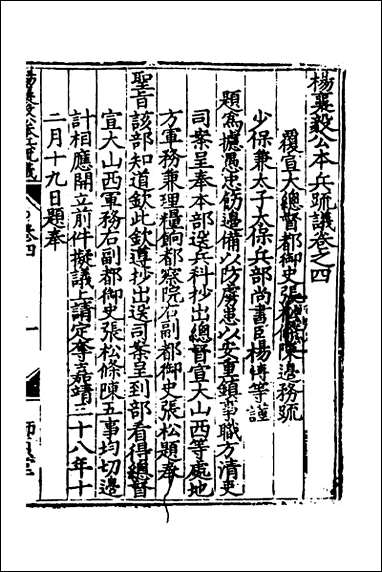 楊襄毅公本兵疏議卷之四
覆宣大總督都御史張松條陳邊務疏
少保兼太子太保兵部尚書臣楊博等謹
題為攄愚忠飭邊備以防虜患以安重鎮事職方清吏
司案呈奉本部送兵科抄出總督宣大山西等處地
方軍務兼理糧餉都察院右副都御史張松題奉
聖旨該部知道欽此欽遵抄出送司案呈到部看得總督
宣大山西軍務右副都御史張松條陳五事均切邊
計相應開立前件擬議上請定奪嘉靖三十八年十
二月十九日題奉
楊襄毅公本兵疏議
卷四
一
師貞堂